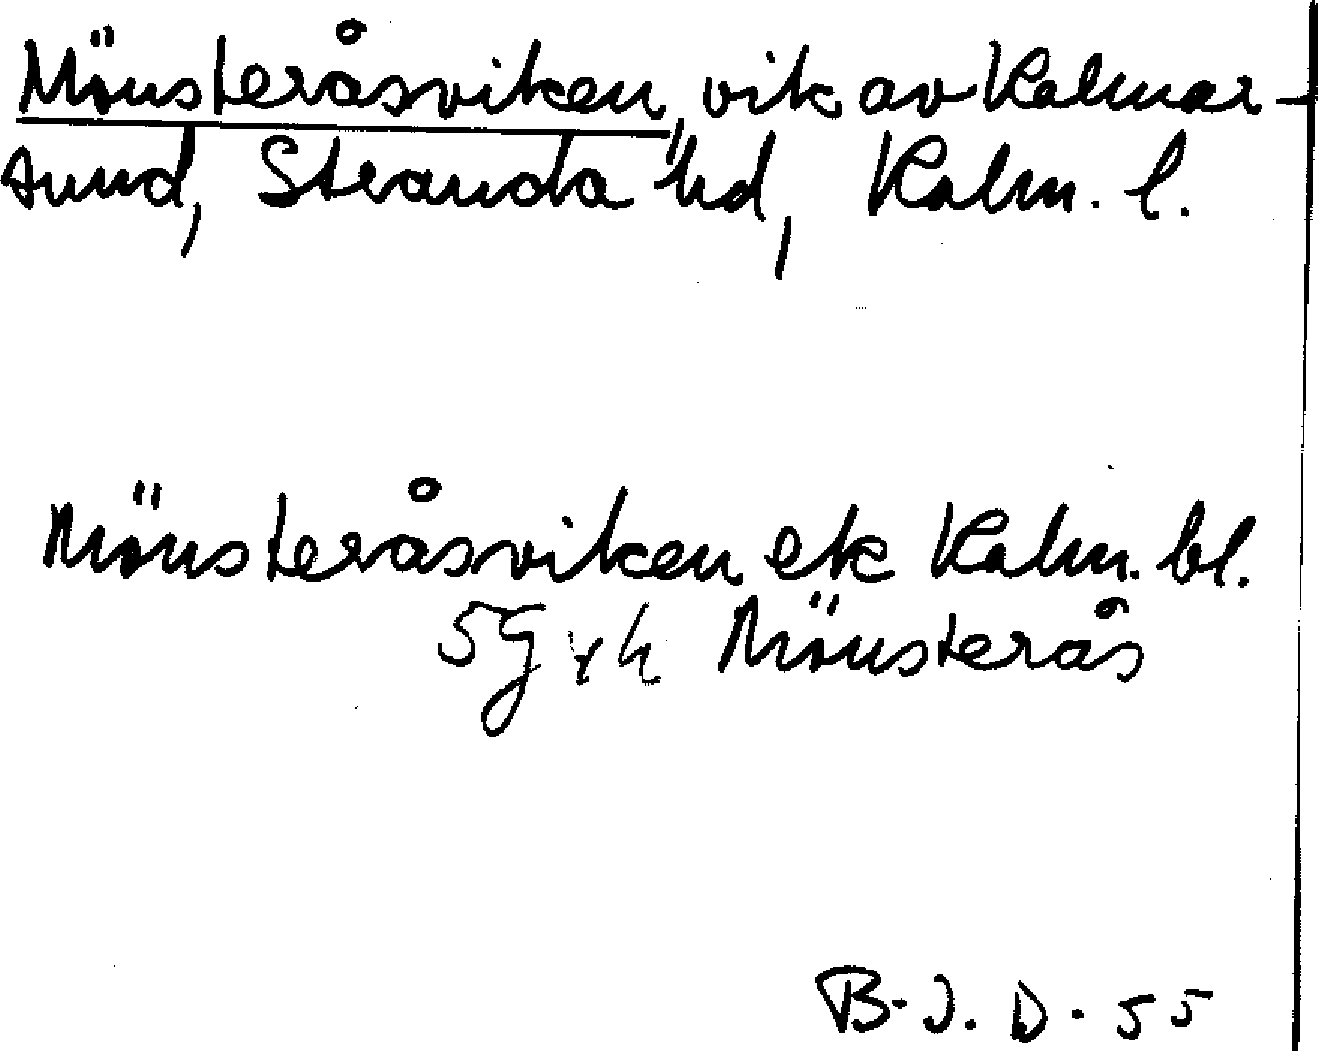 Mönsteråsviken, vik av Kalmar-
sund, Stranda hd, Kalm. l.
Mönsteråsviken ek Kalm. bl.
5g Mönsterås
B.J.D. 55